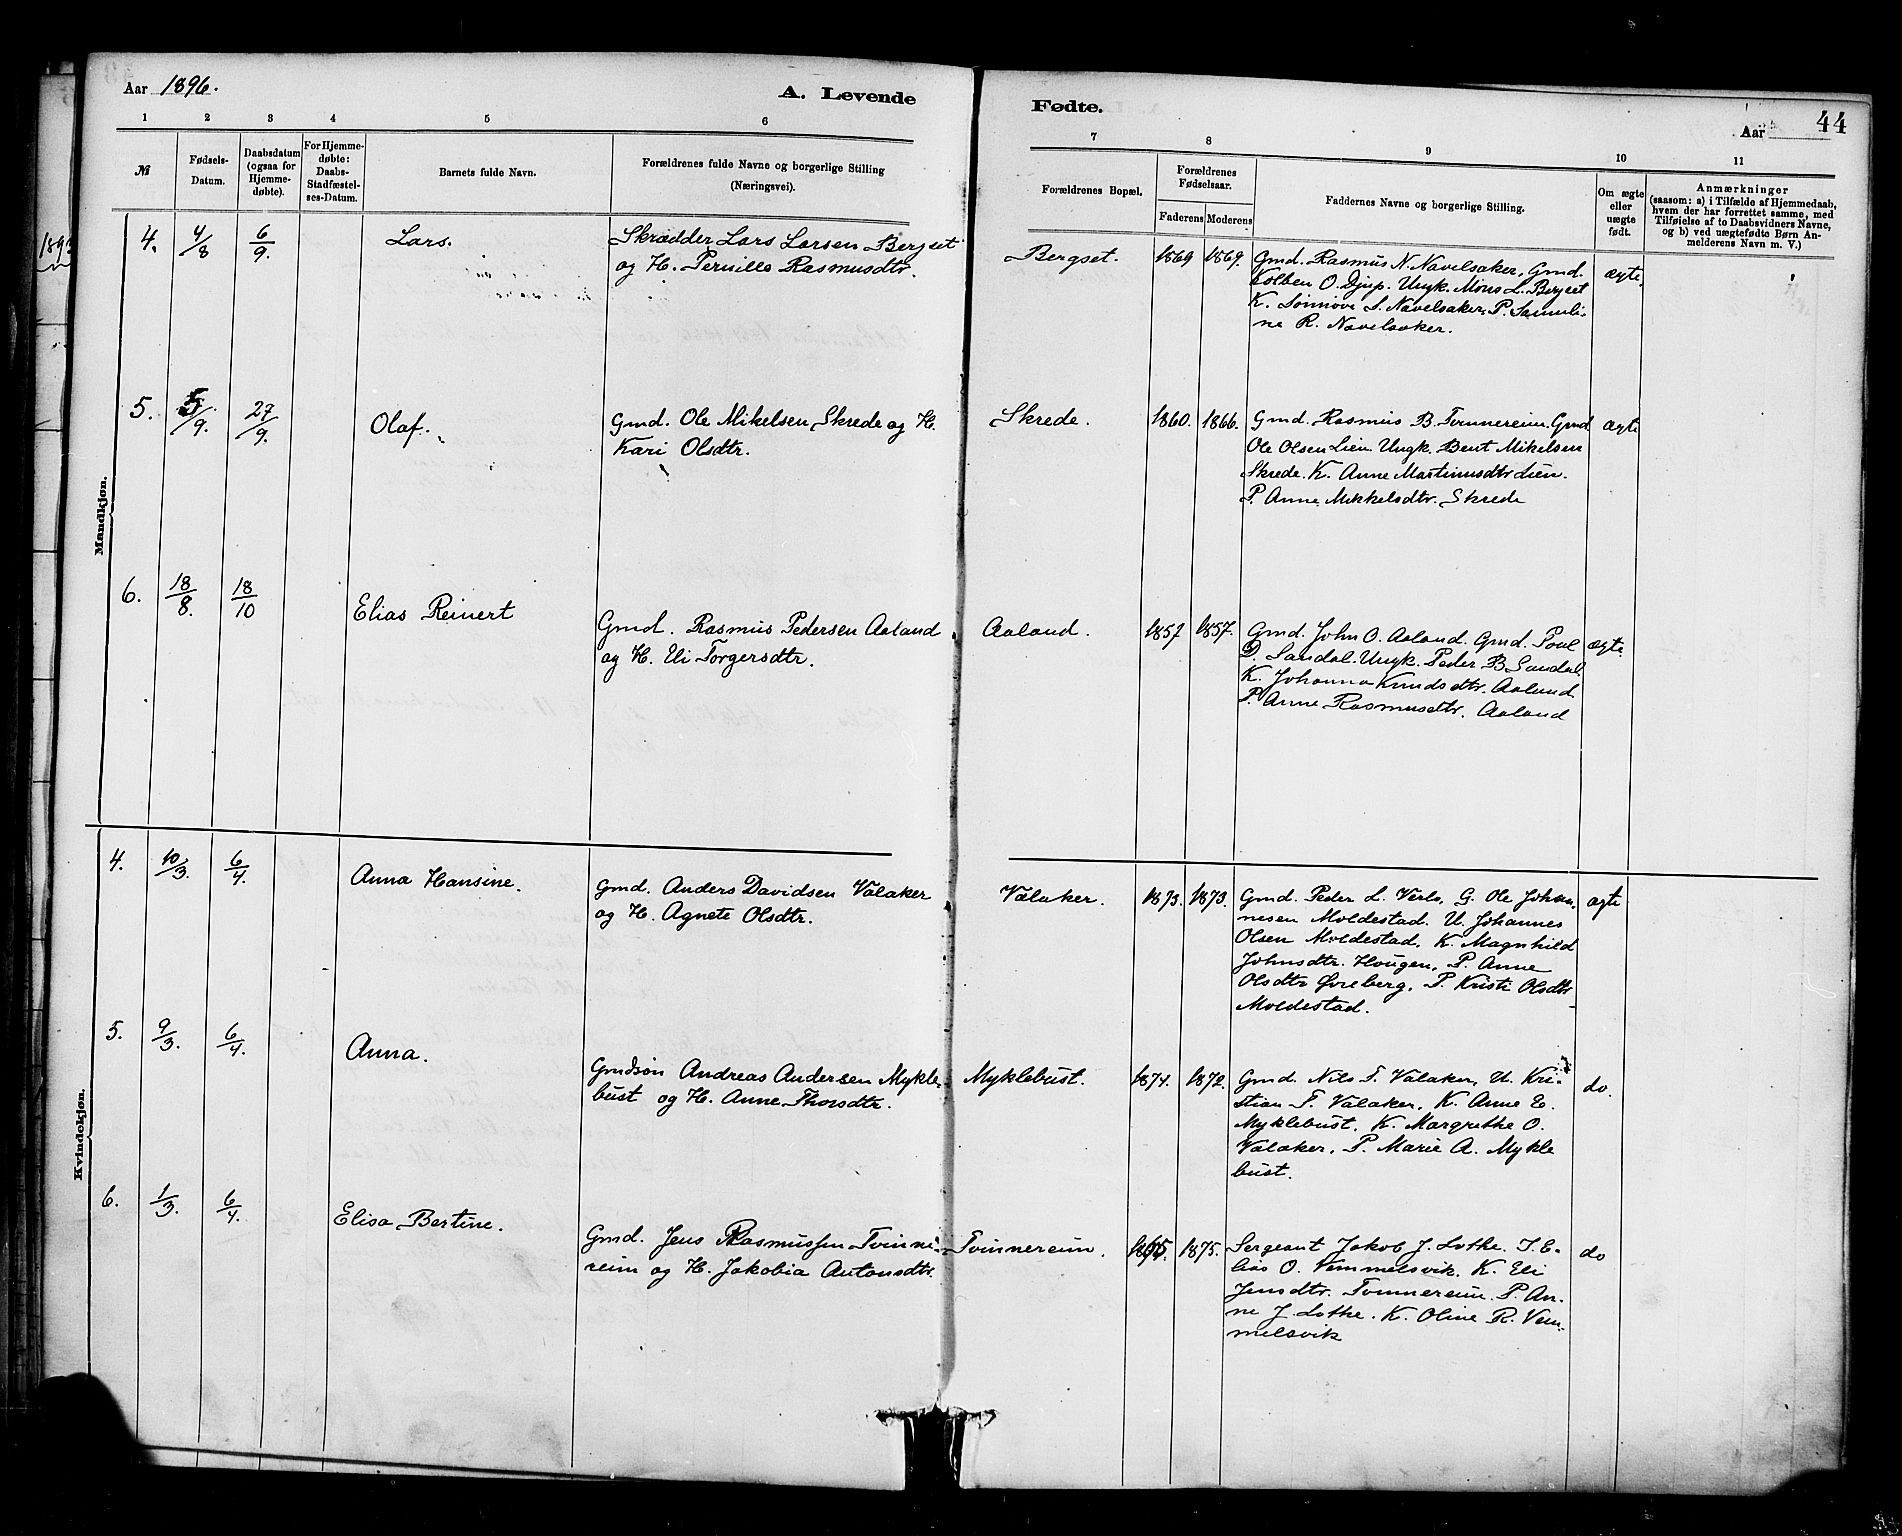 Aar 1896.
A. Levende
Fødte.
Aar
44
1 2 3 4 5 6 7 8 9 10 11
№
Fødsels-
Datum.
Daabsdatum
(ogsaa for
Hjemme-
døbte).
For Hjemme-
døbte:
Daabs-
Stadfæstel-
ses-Datum.
Barnets fulde Navn.
Forældrenes fulde Navne og borgerlige Stilling
(Næringsvei).
Forældrenes Bopæl.
Forældrenes
Fødselsaar.
Faderens
Moderens
Faddernes Navne og borgerlige Stilling.
Om ægte
eller
uægte
født.
Anmærkninger
(saasom: a) i Tilfælde af Hjemmedaab,
hvem der har forrettet samme, med
Tilføielse af to Daabsvidners Navne,
og b) ved uægtefødte Børn An-
melderens Navn m. V.)
Mandkjøn.
4. 4/8 6/9. Lars.
Skrædder Lars Larsen Bergset
og H. Pernille Rasmusdtr.
Bergset. 1869 1869.
Gmd. Rasmus N. Navelsaker, Gmd.
Kolben O. Djup. Ungk. Mons L. Bergset
K. Sønnøve S. Navelsaker, P. Samuli-
ne R. Navelsaker.
ægte.
5. 5/9. 27/9. Olaf.
Gmd. Ole Mikelsen Skrede og H.
Kari Olsdtr.
Skrede. 1860. 1866.
Gmd. Rasmus B. Tvinnereim. Gmd
Ole Olsen Lien. Ungk. Bent Mikelsen
Skrede. K. Anne Martinusdtr Lien.
P. Anne Mikkelsdtr. Skrede
ægte
6. 18/8. 18/10 Elias Reinert
Gmd. Rasmus Pedersen Aaland
og H. Eli Torgersdtr.
Aaland. 1857 1857.
Gmd. John O. Aaland. Gmd. Poul
D. Sandal. Ungk. Peder B Sandal.
K. Johanna Knudsdtr. Aaland
P. Anne Rasmusdtr. Aaland
ægte.
Kvindekjøn.
4. 10/3. 6/4. Anna Hansine.
Gmd. Anders Davidsen Valaker
og H. Agnete Olsdtr.
Valaker. 1873. 1873.
Gmd. Peder L. Verlo, G. Ole Johan-
nesen Moldestad. U. Johannes
Olsen Moldestad, K. Magnhild
Johnsdtr. Hougen, P. Anne
Olsdtr Øreberg, P. Kristi Olsdtr
Moldestad.
ægte
5. 9/3. 6/4. Anna.
Gmdsøn Andreas Andersen Mykle-
bust og H. Anne Thorsdtr.
Myklebust. 1871. 1872.
Gmd. Nils T. Valaker, U. Kri-
stian T. Valaker, K. Anne E.
Myklebust, K. Margrethe O.
Valaker, P. Marie A. Mykle
bust.
do.
6. 1/3. 6/4. Elisa Bertine.
Gmd. Jens Rasmussen Tvinne-
reim og H. Jakobia Antonsdtr.
Tvinnereim. 1875.
Sergeant Jakob J. Lothe. T. E-
lias O. Vemmelsvik. K. Eli
Jensdtr. Tvinnereim. P. An-
ne J. Lothe. K. Oline R. Vem-
melsvik
do